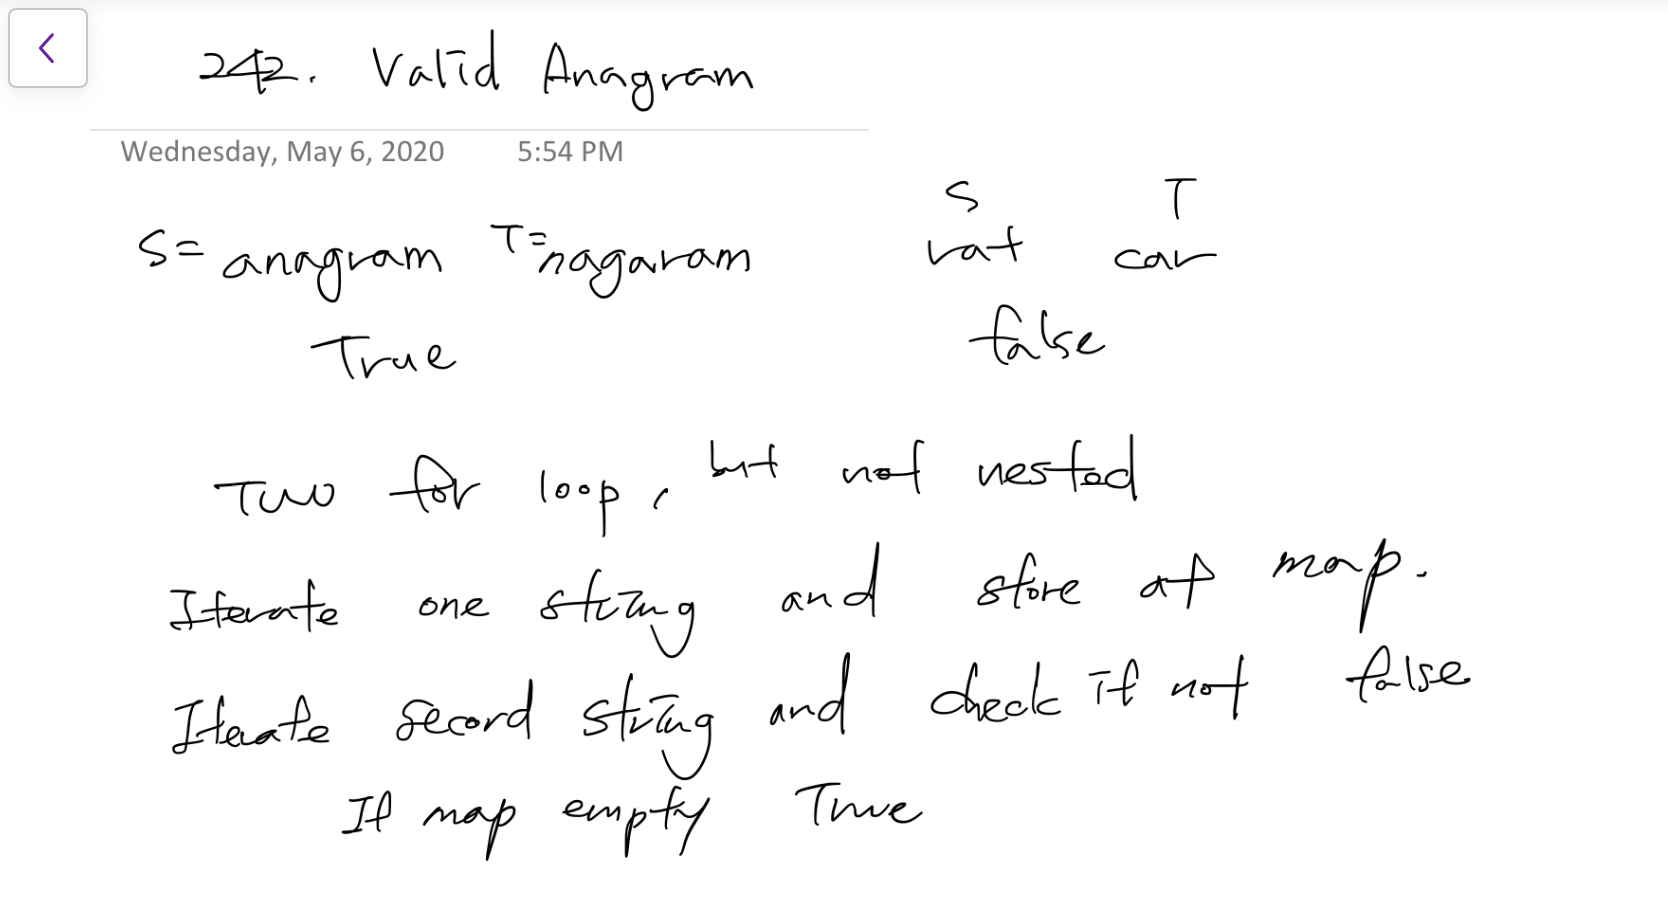 242. Valid Anagram
Wednesday, May 6, 2020 5:54 PM
S T
S= anagram T= nagaram rat car
True false
Two for loop, but not nested
Iterate one string and store at map.
Iterate second string and check if not false
If map empty True